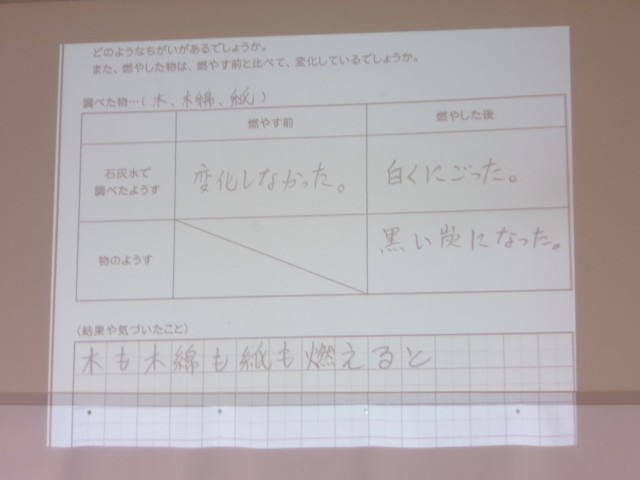 どのようなちがいがあるでしょうか。
また、燃やした物は、燃やす前と比べて、変化しているでしょうか。
調べた物…(木、木綿、紙)
燃やす前
燃やした後
石灰水で
調べたようす
変化しなかった。
白くにごった。
物のようす
黒い炭になった。
〈結果や気づいたこと〉
木も木綿も紙も燃えると